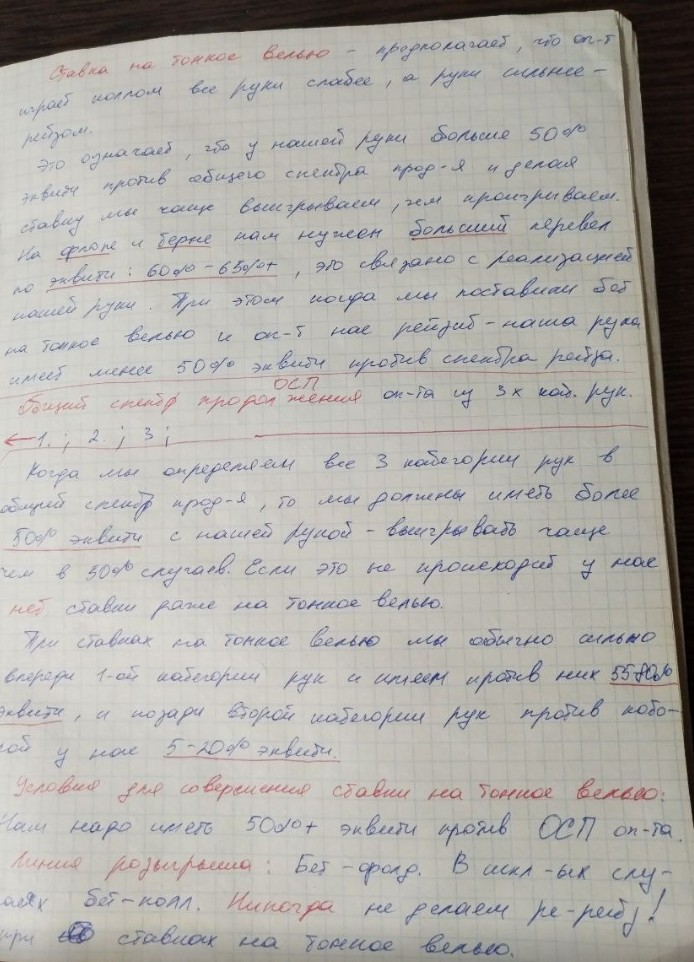 Ставка на тонкое велью – предполагает, что оп-т
играет коллом все руки слабее, а руки сильнее –
рейзом.
Это означает, что у нашей руки больше 50%
эквити против общего спектра прод-я и делая
ставку мы чаще выигрываем, чем проигрываем.
На флопе и терне нам нужен больший перевес
по эквити: 60% – 65%+, это связано с реализацией
нашей руки. При этом когда мы поставили бет
на тонкое велью и оп-т нас рейзит – наша рука
имеет менее 50% эквити против спектра рейза.
ОСП
Общий спектр продолжения оп-та из 3х кат. рук.
← 1. ; 2. ; 3 ;
Когда мы определяем все 3 категории рук в
общий спектр прод-я, то мы должны иметь более
50% эквити с нашей рукой – выигрывать чаще
чем в 50% случаев. Если это не происходит у нас
нет ставки даже на тонкое велью.
При ставках на тонкое велью мы обычно сильно
впереди 1-ой категории рук и имеем против них
эквити, и позади второй категории рук против кото-
рой у нас 5-20% эквити.
Условия для совершения ставки на тонкое велью:
Нам надо иметь 50%+ эквити против ОСП оп-та.
Линия розыгрыша: Бет – фолд. В искл-ых слу-
аях бет-колл. Никогда не делаем ре-рейз!
при ставках на тонкое велью.